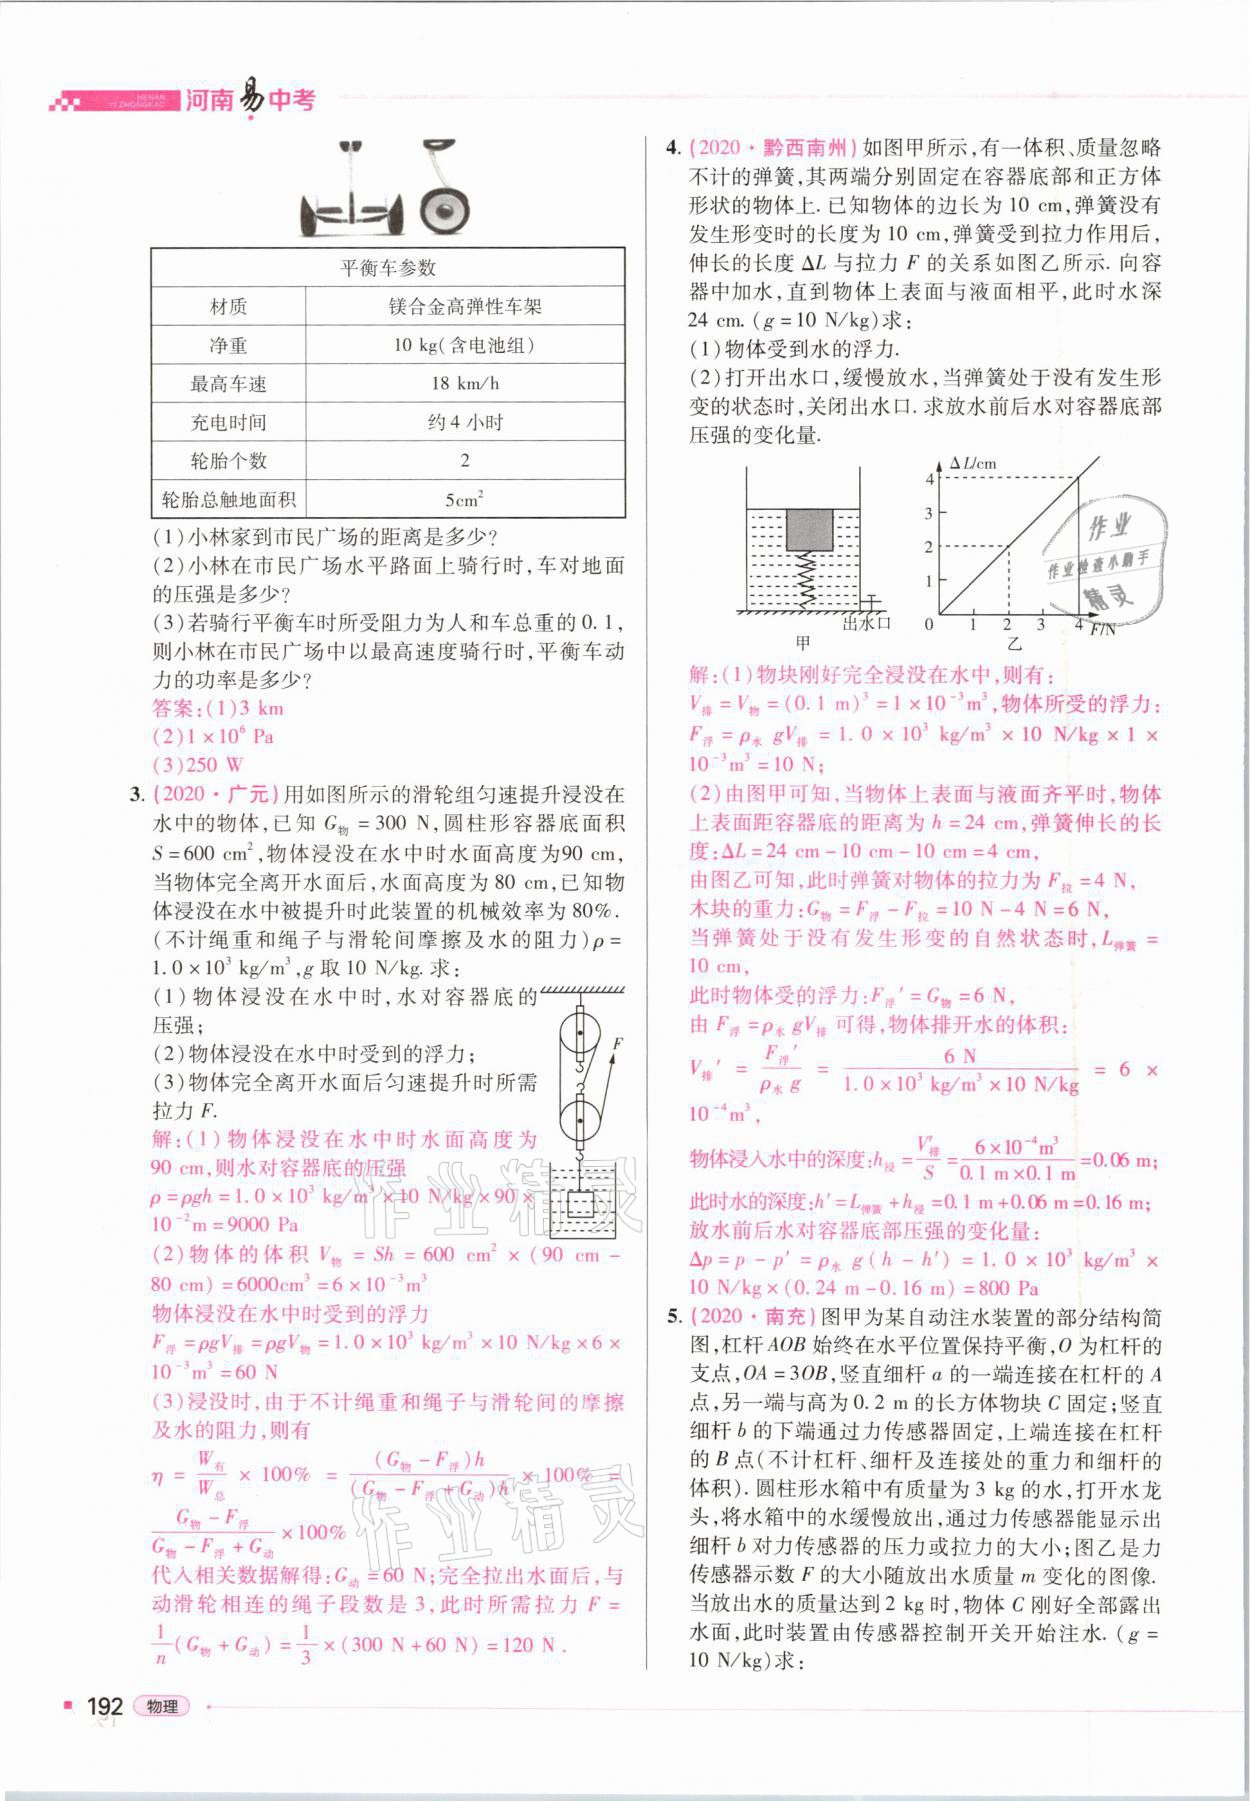 HENAN
YI ZHONGKAO
河南易中考
平衡车参数
材质 镁合金高弹性车架
净重 10 kg(含电池组)
最高车速 18 km/h
充电时间 约4小时
轮胎个数 2
轮胎总触地面积 5cm²
(1)小林家到市民广场的距离是多少?
(2)小林在市民广场水平路面上骑行时,车对地面
的压强是多少?
(3)若骑行平衡车时所受阻力为人和车总重的0.1,
则小林在市民广场中以最高速度骑行时,平衡车动
力的功率是多少?
答案:(1)3 km
(2)1×10⁶ Pa
(3)250 W
3. (2020·广元)用如图所示的滑轮组匀速提升浸没在
水中的物体,已知 G物=300 N,圆柱形容器底面积
S=600 cm²,物体浸没在水中时水面高度为90 cm,
当物体完全离开水面后,水面高度为 80 cm,已知物
体浸没在水中被提升时此装置的机械效率为80%.
(不计绳重和绳子与滑轮间摩擦及水的阻力)ρ=
1.0×10³ kg/m³,g取10 N/kg.求:
(1)物体浸没在水中时,水对容器底的
压强;
(2)物体浸没在水中时受到的浮力;
(3)物体完全离开水面后匀速提升时所需
拉力 F.
F
解:(1)物体浸没在水中时水面高度为
90 cm,则水对容器底的压强
ρ=ρgh=1.0×10³ kg/m³×10 N/kg×90×
10⁻²m=9000 Pa
(2)物体的体积 V物=Sh=600 cm²×(90 cm-
80 cm)=6000cm³=6×10⁻³m³
物体浸没在水中时受到的浮力
F浮=ρgV排=ρgV物=1.0×10³ kg/m³×10 N/kg×6×
10⁻³m³=60 N
(3)浸没时,由于不计绳重和绳子与滑轮间的摩擦
及水的阻力,则有
η = W有/W总 × 100% = (G物-F浮)h/(G物-F浮+G动)h × 100% =
G物-F浮/G物-F浮+G动 ×100%
代入相关数据解得:G动=60 N;完全拉出水面后,与
动滑轮相连的绳子段数是3,此时所需拉力 F=
1/n(G物+G动)=1/3×(300 N+60 N)=120 N.
4. (2020·黔西南州)如图甲所示,有一体积、质量忽略
不计的弹簧,其两端分别固定在容器底部和正方体
形状的物体上.已知物体的边长为10 cm,弹簧没有
发生形变时的长度为10 cm,弹簧受到拉力作用后,
伸长的长度 ΔL 与拉力 F 的关系如图乙所示.向容
器中加水,直到物体上表面与液面相平,此时水深
24 cm.(g=10 N/kg)求:
(1)物体受到水的浮力.
(2)打开出水口,缓慢放水,当弹簧处于没有发生形
变的状态时,关闭出水口.求放水前后水对容器底部
压强的变化量.
出水口
甲
ΔL/cm
4
3
2
1
0 1 2 3 4 F/N
乙
作业
作业检查小助手
精灵
解:(1)物块刚好完全浸没在水中,则有:
V排=V物=(0.1 m)³=1×10⁻³m³,物体所受的浮力:
F浮=ρ水 gV排=1.0×10³ kg/m³×10 N/kg×1×
10⁻³m³=10 N;
(2)由图甲可知,当物体上表面与液面齐平时,物体
上表面距容器底的距离为 h=24 cm,弹簧伸长的长
度:ΔL=24 cm-10 cm-10 cm=4 cm,
由图乙可知,此时弹簧对物体的拉力为 F拉=4 N,
木块的重力:G物=F浮-F拉=10 N-4 N=6 N,
当弹簧处于没有发生形变的自然状态时,L弹簧=
10 cm,
此时物体受的浮力:F浮′=G物=6 N,
由 F浮=ρ水 gV排可得,物体排开水的体积:
V排′ = F浮′/ρ水 g = 6 N/1.0×10³ kg/m³×10 N/kg = 6 ×
10⁻⁴m³,
物体浸入水中的深度:h浸=V′排/S=6×10⁻⁴m³/0.1 m×0.1 m=0.06 m;
此时水的深度:h′=L弹簧+h浸=0.1 m+0.06 m=0.16 m;
放水前后水对容器底部压强的变化量:
Δp=p-p′=ρ水 g(h-h′)=1.0×10³ kg/m³×
10 N/kg×(0.24 m-0.16 m)=800 Pa
5. (2020·南充)图甲为某自动注水装置的部分结构简
图,杠杆AOB始终在水平位置保持平衡,O为杠杆的
支点,OA=3OB,竖直细杆 a 的一端连接在杠杆的 A
点,另一端与高为0.2 m的长方体物块C固定;竖直
细杆b的下端通过力传感器固定,上端连接在杠杆
的B点(不计杠杆、细杆及连接处的重力和细杆的
体积).圆柱形水箱中有质量为3 kg的水,打开水龙
头,将水箱中的水缓慢放出,通过力传感器能显示出
细杆b对力传感器的压力或拉力的大小;图乙是力
传感器示数F的大小随放出水质量m变化的图像.
当放出水的质量达到2 kg时,物体C刚好全部露出
水面,此时装置由传感器控制开关开始注水.(g=
10 N/kg)求:
作业精灵
作业精灵
192 物理